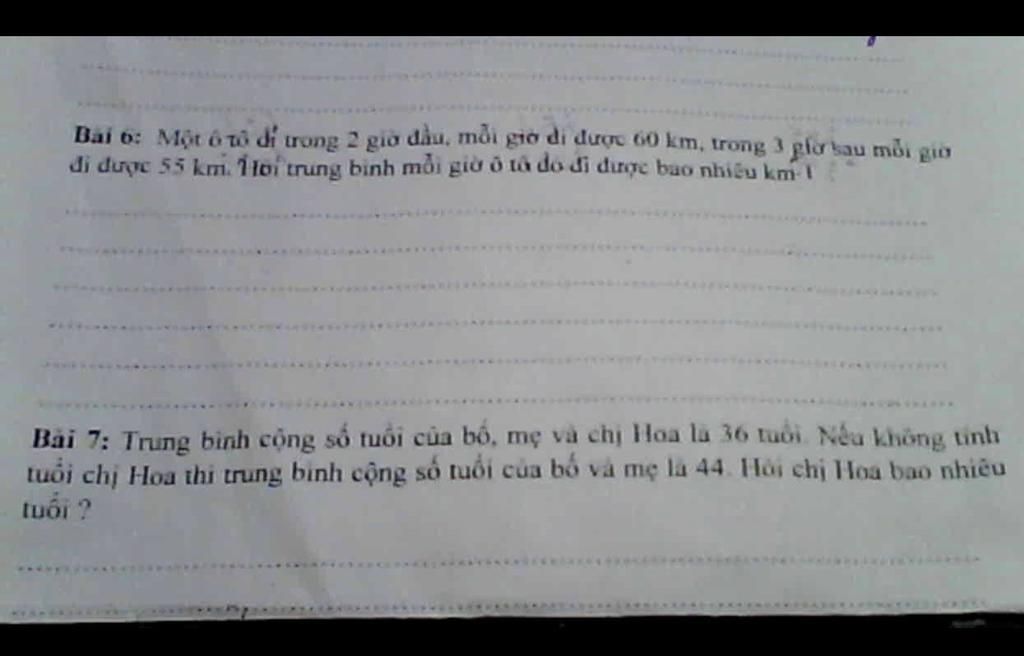 Bài 6: Một ô tô đi trong 2 giờ đầu, mỗi giờ đi được 60 km, trong 3 giờ sau mỗi giờ
đi được 55 km. Hỏi trung bình mỗi giờ ô tô đó đi được bao nhiêu km
Bài 7: Trung bình cộng số tuổi của bố, mẹ và chị Hoa là 36 tuổi. Nếu không tính
tuổi chị Hoa thì trung bình cộng số tuổi của bố và mẹ là 44. Hỏi chị Hoa bao nhiêu
tuổi ?